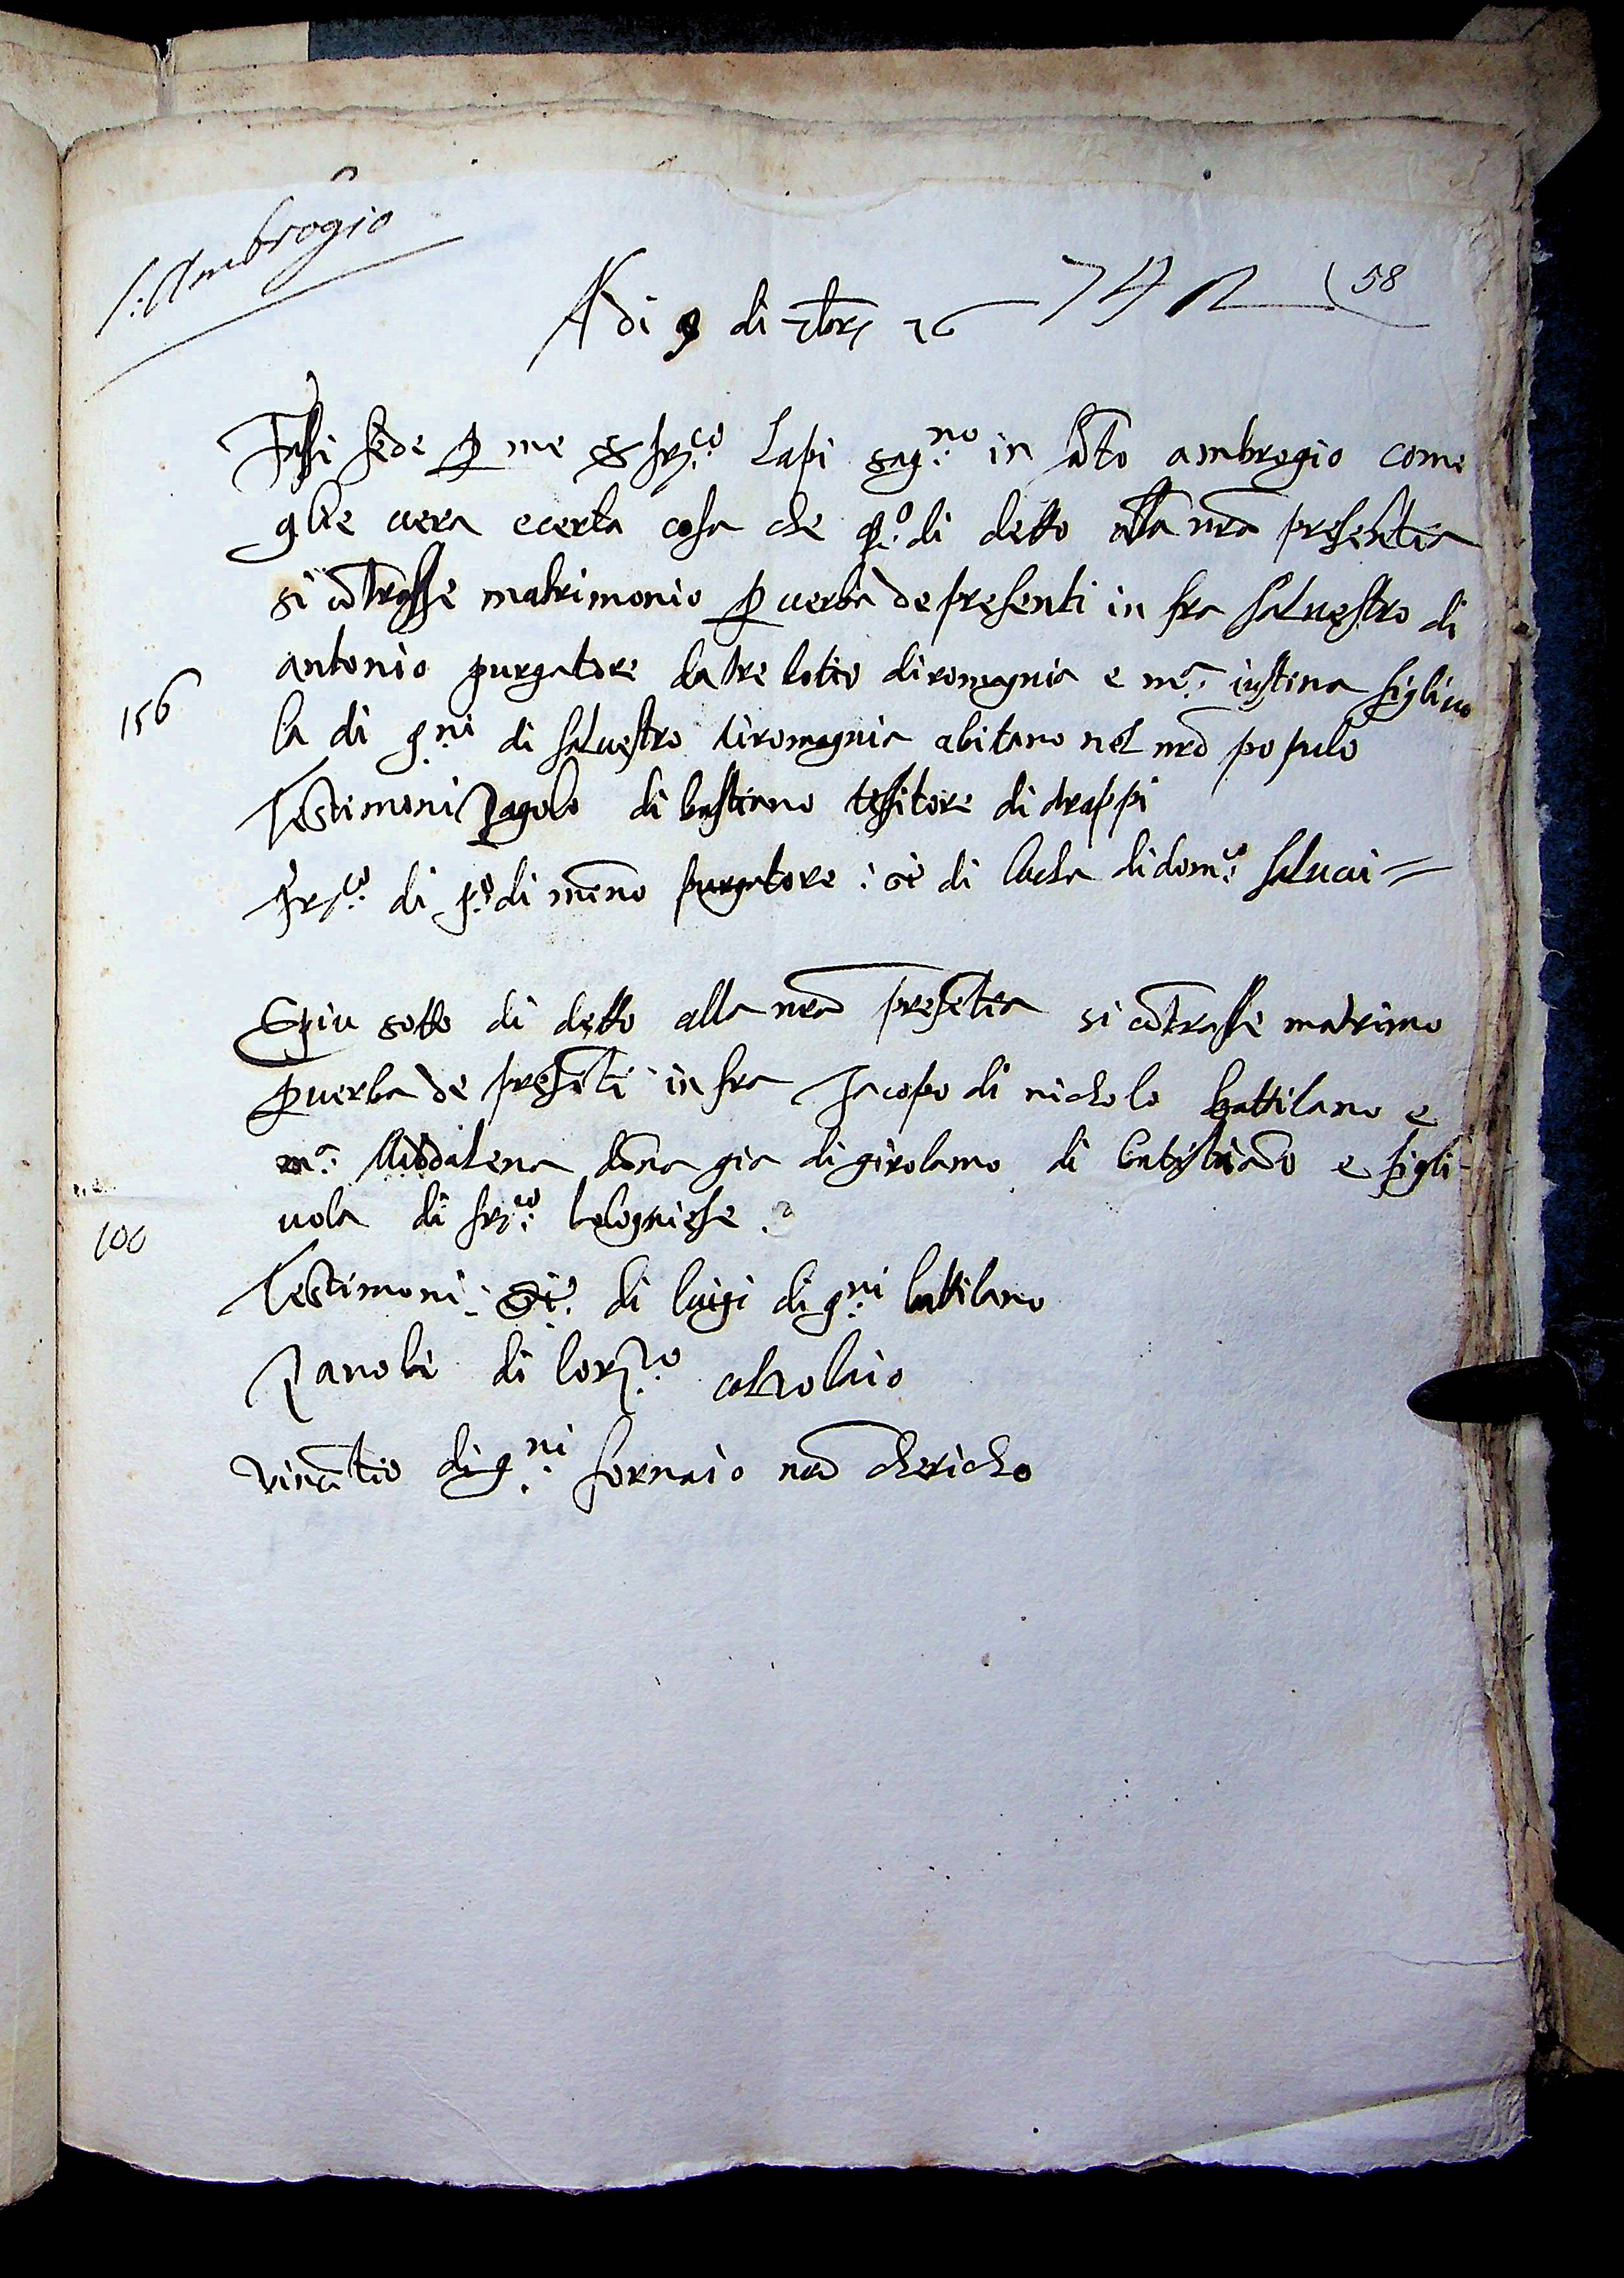 S: Ambrogio
Adi 9 di 7bre 76
58
Fassi fede p me S fr:co Lapi sag:no in sto ambrogio come
glie vera ecerta cosa che qo: di detto alla nra presentia
si cotrasse matrimonio p verba depresenti in fra salvestro di
antonio purgatore da tre diromagnia e ma: iustina figliuo
156
la di g:ni di salvestro diromagnia abitano nel nro populo
Testimoni pagolo di bastiano tesitore di drappi
fr:co di po: di meno purgatore : di lucha didom:co salvuci =
E piu sotto di detto alla nra presetia si cotrasse matrimo
p verba de preseti in fra Jacopo di nicholo battilano e
ma: Maddalena dona gia digirolamo di e figli
100
uola di fr:co bolognese
Testimoni: di luigi di g:ni battilano
Zanobi di lor:zo coltrolaio
vincetio di g:ni fornaio nro chericho